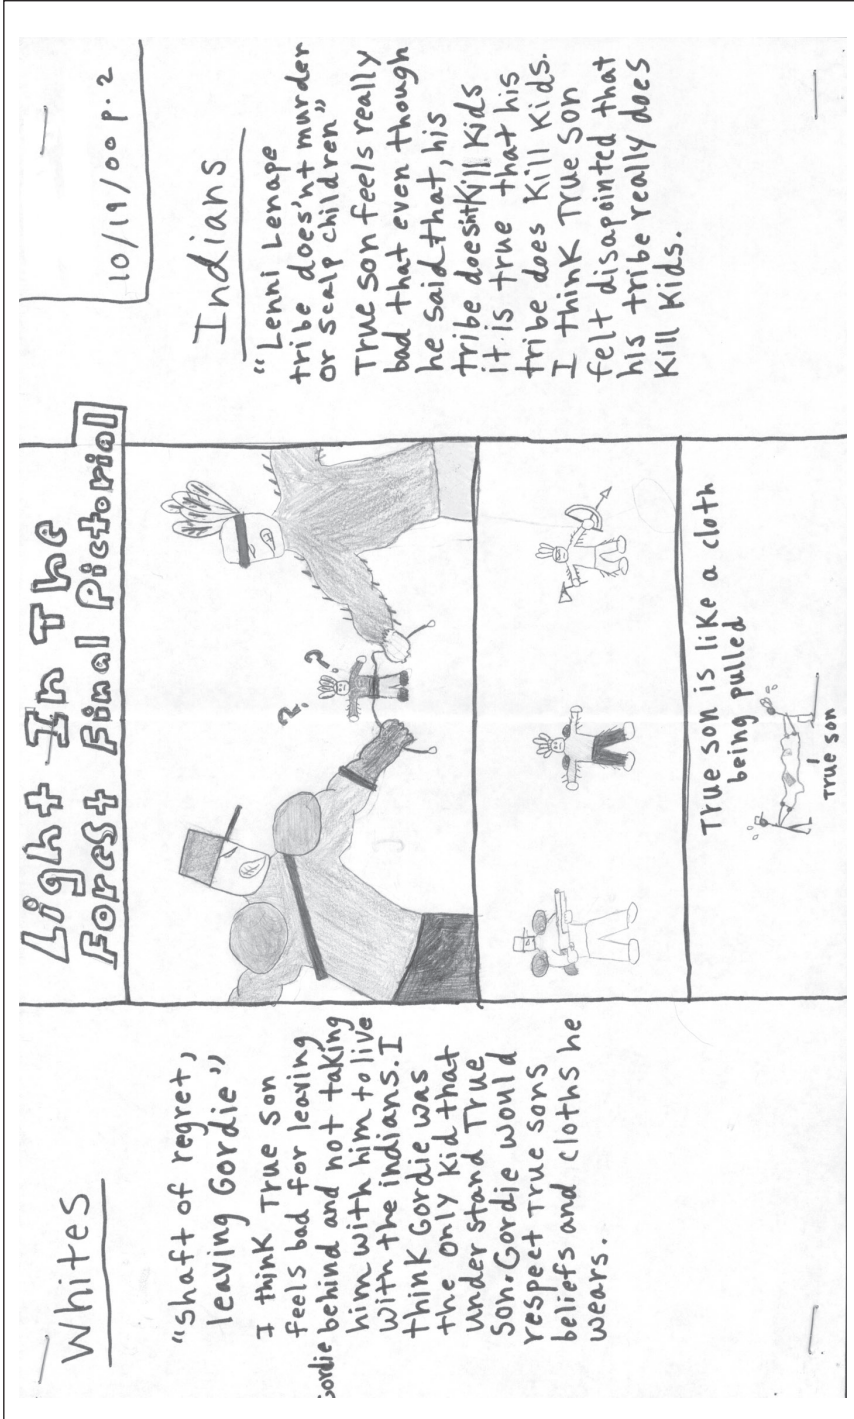 Light In The
Forest Final Pictorial
10/19/00 p. 2
Whites
"shaft of regret,
leaving Gordie"
I think True son
feels bad for leaving
Gordie behind and not taking
him with him to live
with the indians. I
think Gordie was
the only kid that
under stand True
son. Gordie would
respect True sons
beliefs and cloths he
wears.
? ?
True son is like a cloth
being pulled
True son
Indians
"Lenni Lenape
tribe does'nt murder
or scalp children"
True son feels really
bad that even though
he said that, his
tribe doesn't Kill Kids
it is true that his
tribe does Kill Kids.
I think True Son
felt disapointed that
his tribe really does
Kill Kids.